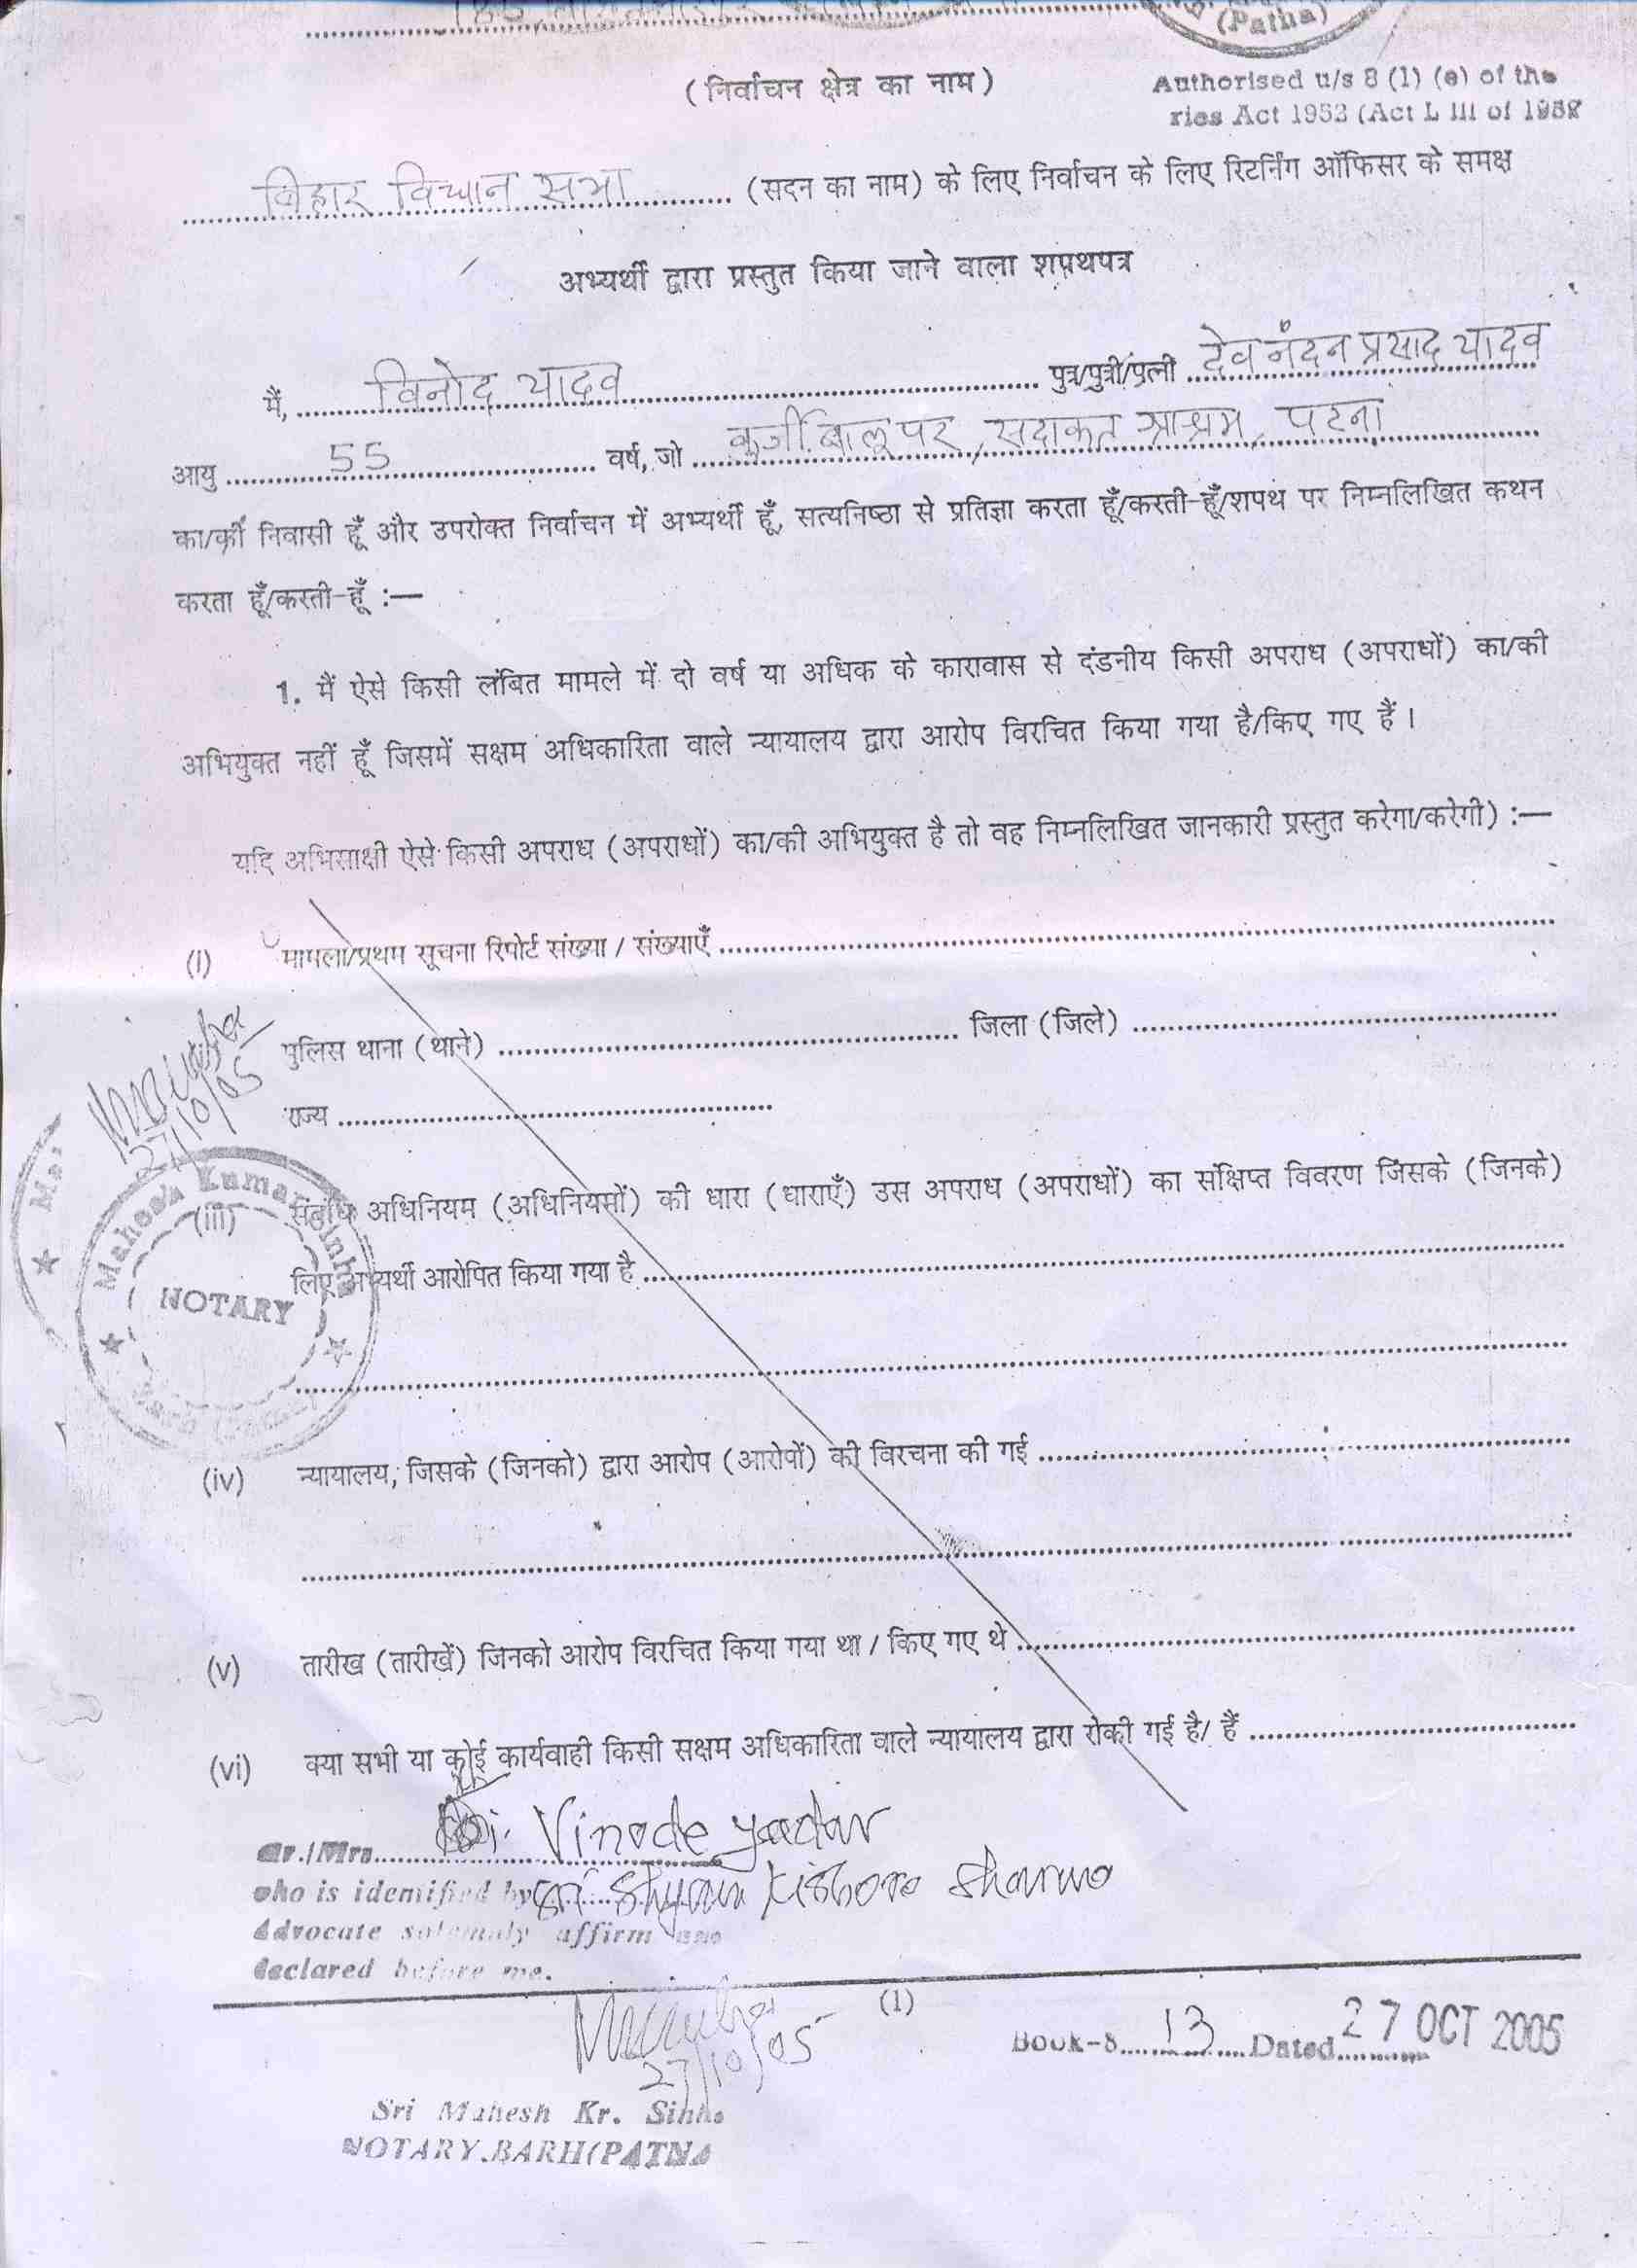 (Patna)
(निर्वाचन क्षेत्र का नाम)
Authorised u/s 8 (1) (e) of the
ries Act 1952 (Act L III of 1952
बिहार विधान सभा (सदन का नाम) के लिए निर्वाचन के लिए रिटर्निंग ऑफिसर के समक्ष
अभ्यर्थी द्वारा प्रस्तुत किया जाने वाला शपथपत्र
मैं, विनोद यादव पुत्र/पुत्री/पत्नी देव नंदन प्रसाद यादव
आयु 55 वर्ष, जो कुर्जी बालूपर, सदाकत आश्रम, पटना
का/की निवासी हूँ और उपरोक्त निर्वाचन में अभ्यर्थी हूँ, सत्यनिष्ठा से प्रतिज्ञा करता हूँ/करती हूँ/शपथ पर निम्नलिखित कथन
करता हूँ/करती हूँ :—
1. मैं ऐसे किसी लंबित मामले में दो वर्ष या अधिक के कारावास से दंडनीय किसी अपराध (अपराधों) का/की
अभियुक्त नहीं हूँ जिसमें सक्षम अधिकारिता वाले न्यायालय द्वारा आरोप विरचित किया गया है/किए गए हैं ।
यदि अभिसाक्षी ऐसे किसी अपराध (अपराधों) का/की अभियुक्त है तो वह निम्नलिखित जानकारी प्रस्तुत करेगा/करेगी) :—
(i) मामला/प्रथम सूचना रिपोर्ट संख्या / संख्याएँ
पुलिस थाना (थाने) जिला (जिले)
राज्य
27/10/05
Mahesh Kumar Sinha
NOTARY
(iii) संबंधित अधिनियम (अधिनियमों) की धारा (धाराएँ) उस अपराध (अपराधों) का संक्षिप्त विवरण जिसके (जिनके)
लिए अभ्यर्थी आरोपित किया गया है
(iv) न्यायालय, जिसके (जिनको) द्वारा आरोप (आरोपों) की विरचना की गई
(v) तारीख (तारीखें) जिनको आरोप विरचित किया गया था / किए गए थे
(vi) क्या सभी या कोई कार्यवाही किसी सक्षम अधिकारिता वाले न्यायालय द्वारा रोकी गई है/ हैं
Mr./Mrs Vinode yadav
who is identified by Sri Shyam Kishore Sharma
Advocate solemnly affirm and
declared before me.
(1)
27/10/05
Book-8 13 Dated 27 OCT 2005
Sri Mahesh Kr. Sinha
NOTARY.BARH(PATNA